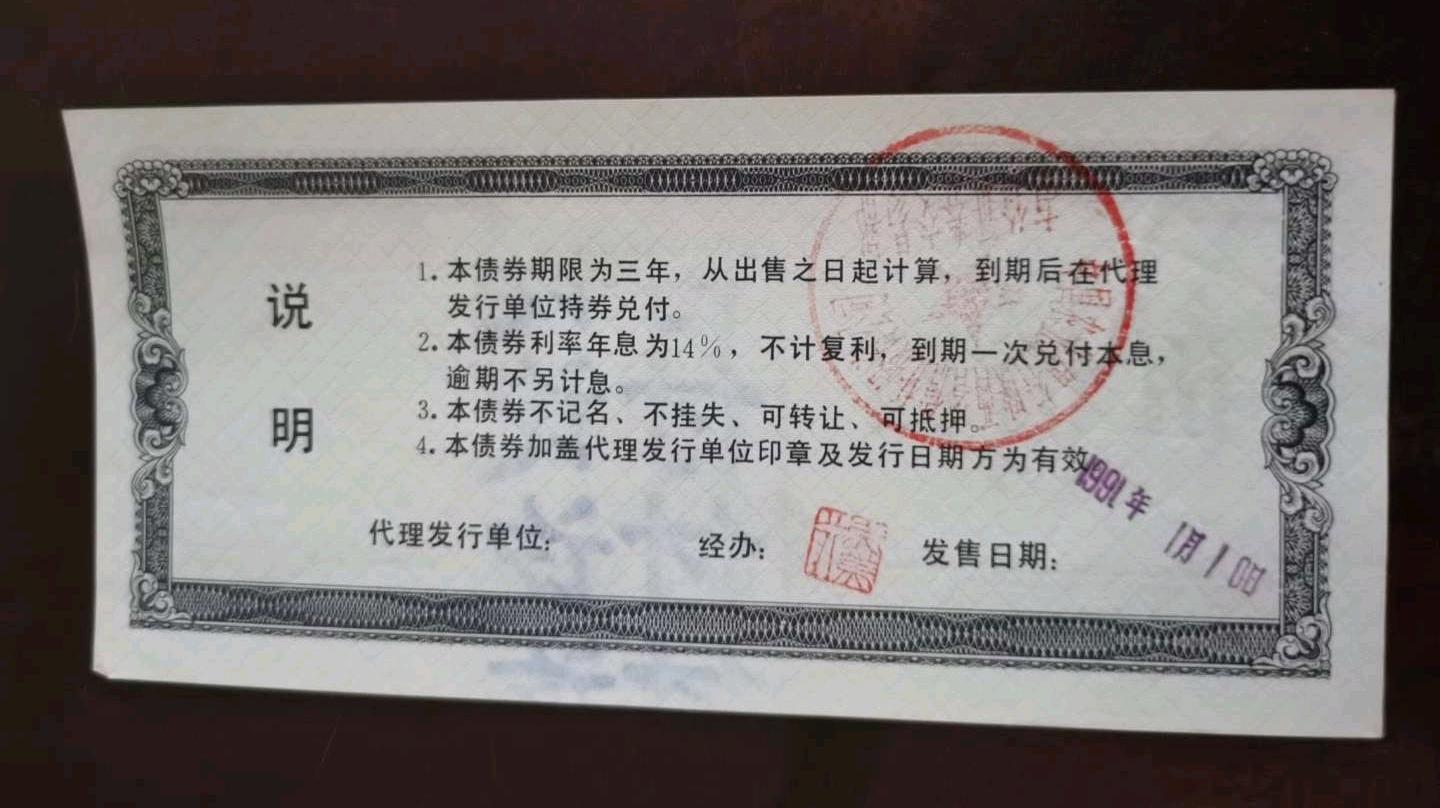 说明
1.本债券期限为三年，从出售之日起计算，到期后在代理
发行单位持券兑付。
2.本债券利率年息为14%，不计复利，到期一次兑付本息，
逾期不另计息。
3.本债券不记名、不挂失、可转让、可抵押。
4.本债券加盖代理发行单位印章及发行日期方为有效
代理发行单位： 经办： 发售日期：
1991年 1月 1日